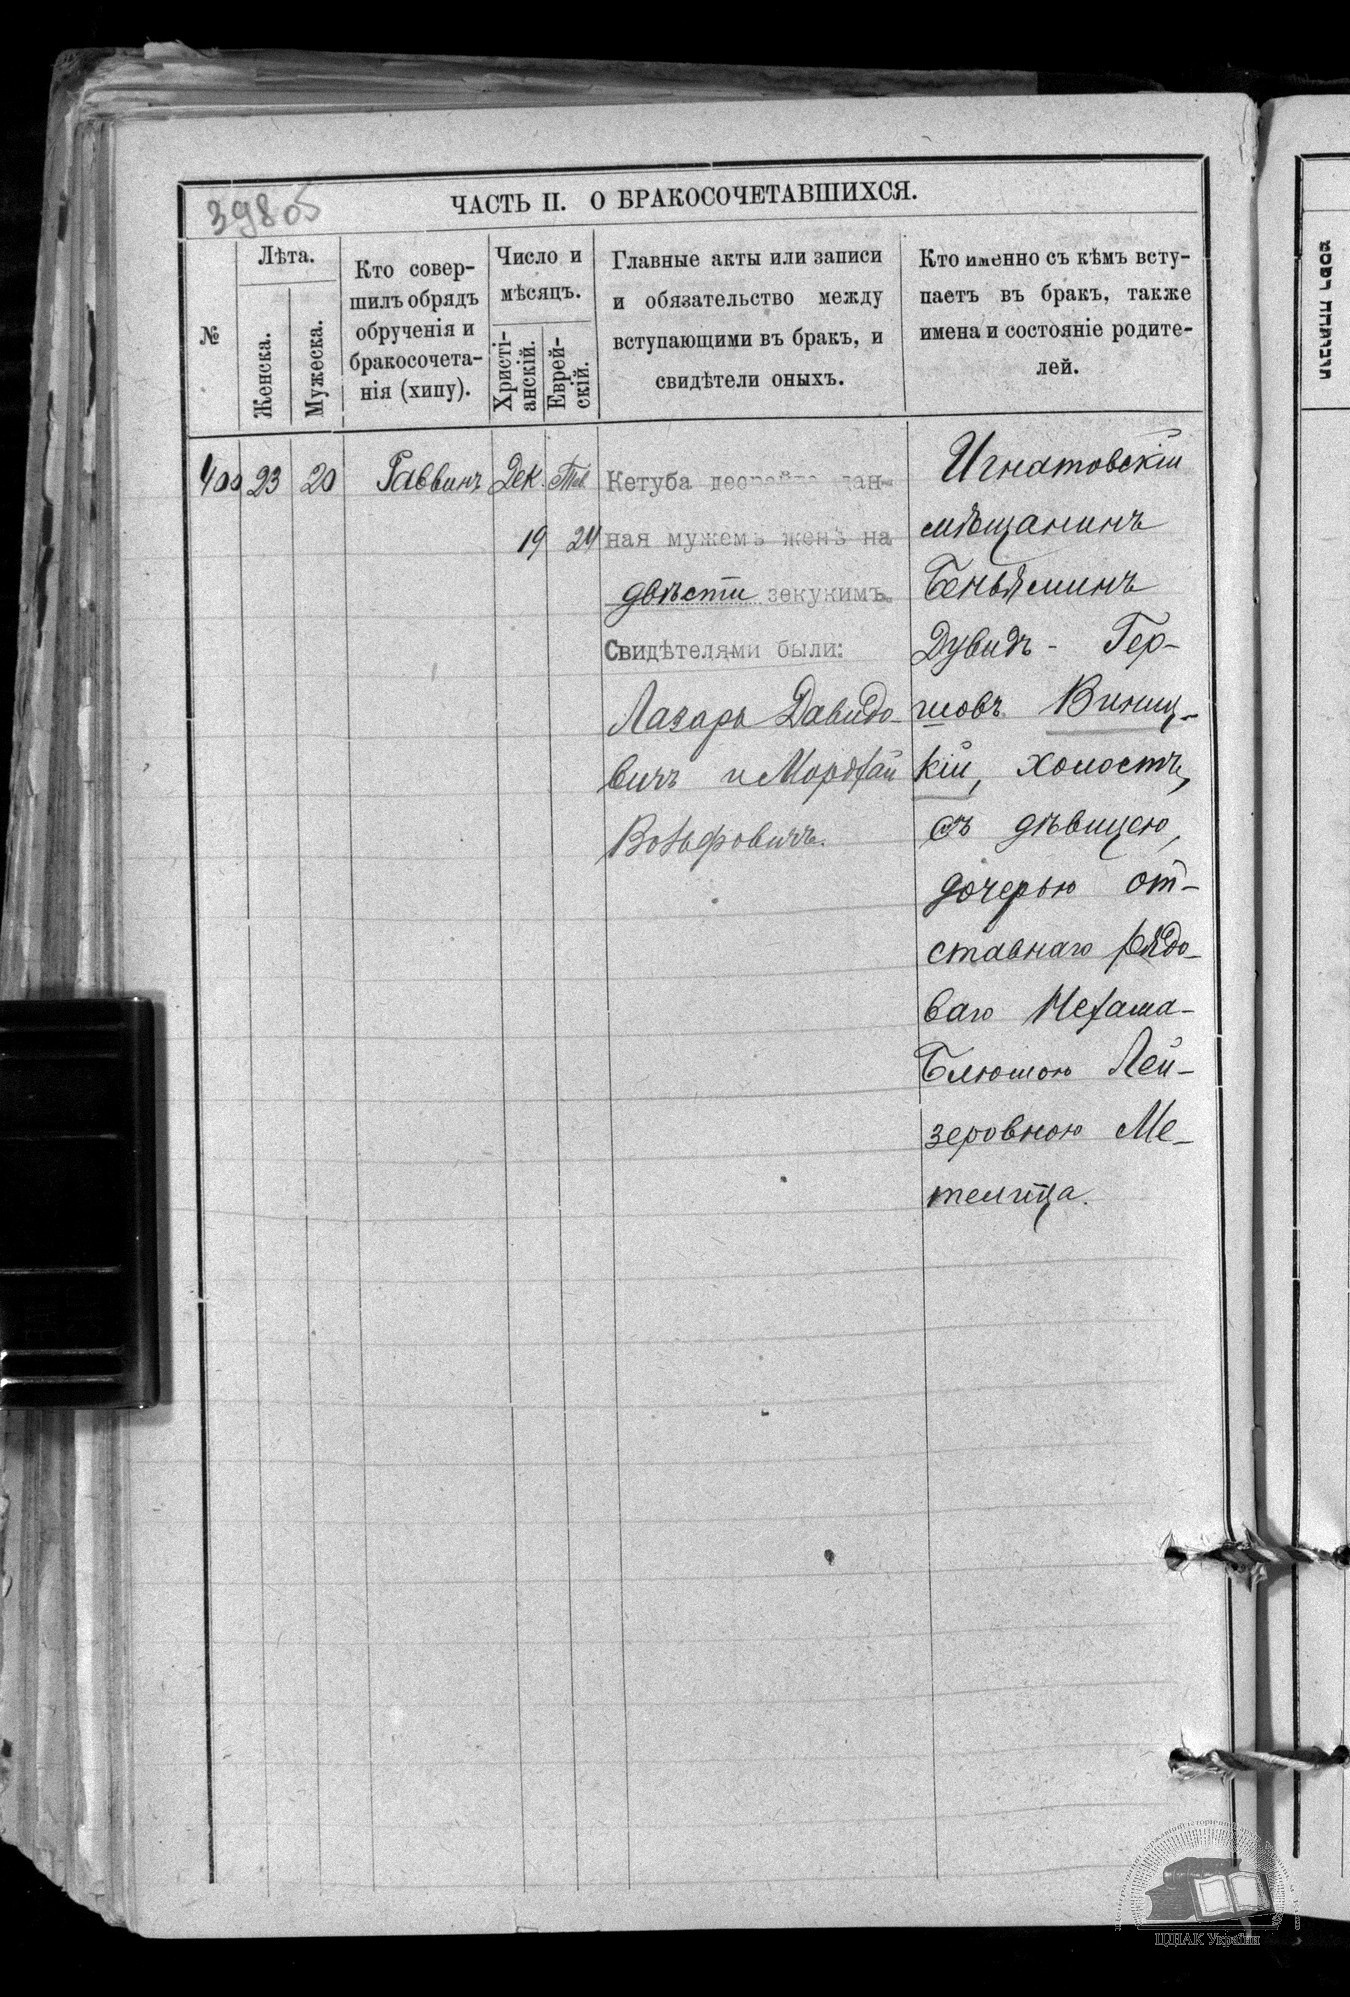 39805
ЧАСТЬ II. О БРАКОСОЧЕТАВШИХСЯ.
№
Лѣта.
Женска.
Мужеска.
Кто совер-
шилъ обрядъ
обрученія и
бракосочета-
нія (хипу).
Число и
мѣсяцъ.
Христі-
анскій.
Еврей-
скій.
Главные акты или записи
и обязательство между
вступающими въ бракъ, и
свидѣтели оныхъ.
Кто именно съ кѣмъ всту-
паетъ въ бракъ, также
имена и состояніе родите-
лей.
400 23 20 Раввинъ Дек. Тев.
19 24
Кетуба деорайта дан-
ная мужемъ женѣ на
двѣсти зекукимъ.
Свидѣтелями были:
Лазарь Давидо-
вичъ и Мордхай
Вольфовичъ.
Игнатовскій
мѣщанинъ
Беньяминъ
Дувидъ - Гер-
шовъ Виниц-
кій, холостъ,
съ дѣвицею,
дочерью от-
ставнаго рядо-
ваго Нехама-
Блюмою Лей-
зеровною Ме-
телица.
ЦДІАК України